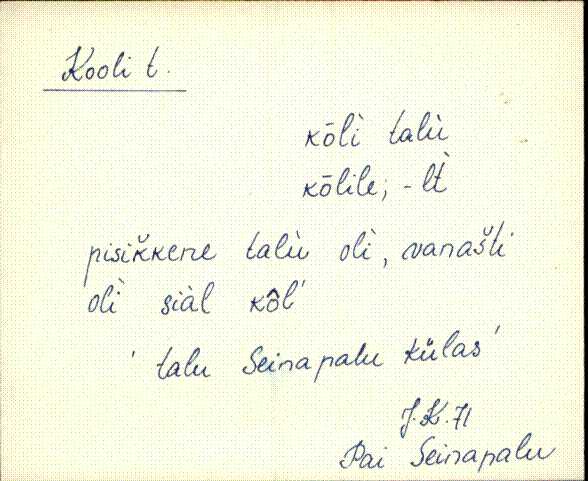 Kooli t.
kōlì talù
kōlile; -lt̀
pisikkene talù olì, vanašti
olì siàl kōl'
' talu Seinapalu külas '
J.K. 71
Pai Seinapalu